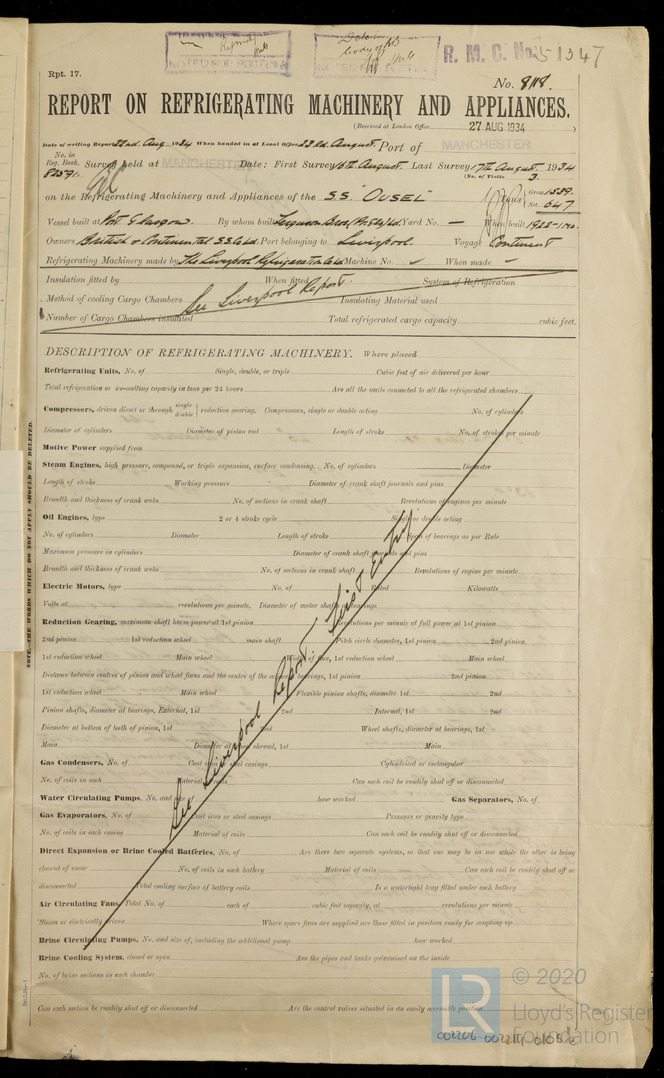 Rpt. 17.
NOTED FOR POSTING
R. M. C. No. 51347
No. 8118.
REPORT ON REFRIGERATING MACHINERY AND APPLIANCES.
(Received at London Office 27 AUG 1934)
Date of writing Report 22nd. Aug 1934 When handed in at Local Office 23rd. August. Port of MANCHESTER.
No. in Reg. Book. Survey held at MANCHESTER Date: First Survey 16th. August. Last Survey 17th August. 1934
(No. of Visits 3.
on the Refrigerating Machinery and Appliances of the S.S. "OUSEL" Tons Gross 1539. Net 647
Vessel built at Port Glasgow. By whom built Ferguson Bros. Yard No. — When built 1922-11mo.
Owners British & Continental S.S. Co Ltd. Port belonging to Liverpool. Voyage Continent
Refrigerating Machinery made by The Liverpool Refrigeration Co Ltd Machine No. When made
Insulation fitted by When fitted System of Refrigeration
See Liverpool Report.
Method of cooling Cargo Chambers Insulating Material used
Number of Cargo Chambers insulated Total refrigerated cargo capacity cubic feet.
DESCRIPTION OF REFRIGERATING MACHINERY. Where placed
Refrigerating Units, No. of Single, double, or triple Cubic feet of air delivered per hour
Total refrigeration or ice-melting capacity in tons per 24 hours Are all the units connected to all the refrigerated chambers
Compressors, driven direct or through single double reduction gearing. Compressors, single or double acting No. of cylinders
Diameter of cylinders Diameter of piston rod Length of stroke No. of strokes per minute
Motive Power supplied from
Steam Engines, high pressure, compound, or triple expansion, surface condensing. No. of cylinders Diameter
Length of stroke Working pressure Diameter of crank shaft journals and pins
Breadth and thickness of crank webs No. of sections in crank shaft Revolutions of engines per minute
Oil Engines, type 2 or 4 stroke cycle Single or double acting
No. of cylinders Diameter Length of stroke Span of bearings as per Rule
Maximum pressure in cylinders Diameter of crank shaft journals and pins
Breadth and thickness of crank webs No. of sections in crank shaft Revolutions of engine per minute
Electric Motors, type No. of Rated Kilowatts
Volts at revolutions per minute, Diameter of motor shafts at bearings
Reduction Gearing, maximum shaft horse power at 1st pinion Revolutions per minute at full power at 1st pinion
2nd pinion 1st reduction wheel main shaft Pitch circle diameter, 1st pinion 2nd pinion
1st reduction wheel Main wheel Width of face, 1st reduction wheel Main wheel
Distance between centres of pinion and wheel faces and the centre of the adjacent bearings, 1st pinion 2nd pinion
1st reduction wheel Main wheel Flexible pinion shafts, diameter 1st 2nd
Pinion shafts, diameter at bearings, External, 1st 2nd Internal, 1st 2nd
Diameter at bottom of teeth of pinion, 1st 2nd Wheel shafts, diameter at bearings, 1st
Main Diameter at wheel shroud, 1st Main
Gas Condensers, No. of Cast iron or steel casings Cylindrical or rectangular
No. of coils in each Material of coils Can each coil be readily shut off or disconnected
Water Circulating Pumps, No. and size of how worked Gas Separators, No. of
Gas Evaporators, No. of Cast iron or steel casings Pressure or gravity type
No. of coils in each casing Material of coils Can each coil be readily shut off or disconnected
Direct Expansion or Brine Cooled Batteries, No. of Are there two separate systems, so that one may be in use while the other is being
cleared of snow No. of coils in each battery Material of coils Can each coil be readily shut off or
disconnected Total cooling surface of battery coils Is a watertight tray fitted under each battery
Air Circulating Fans, Total No. of each of cubic feet capacity, at revolutions per minute
Steam or electrically driven Where spare faces are supplied are these fitted in position ready for coupling up
Brine Circulating Pumps, No. and size of, including the additional pump how worked
Brine Cooling System, closed or open Are the pipes and tanks galvanised on the inside
No. of brine sections in each chamber
Can each section be readily shut off or disconnected Are the control valves situated in an easily accessible position
See Liverpool Report:
NOTE.—THE WORDS WHICH DO NOT APPLY SHOULD BE DELETED.
LR
© 2020
Lloyd's Register
Foundation